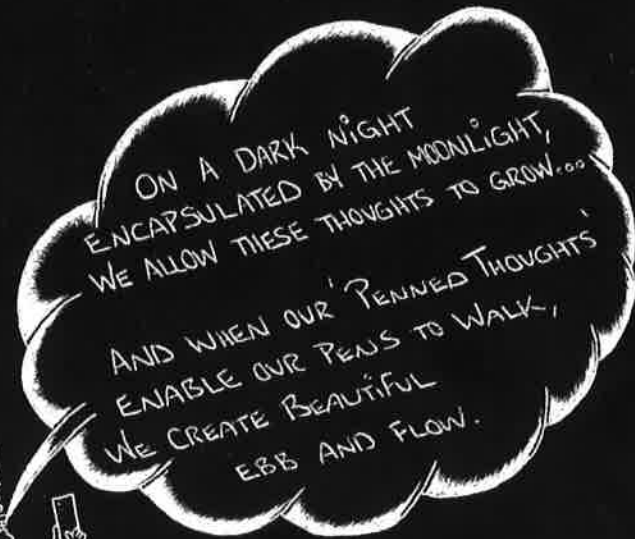 ON A DARK NiGHT
ENCAPSULATED BY THE MOONLiGHT,
WE ALLOW THESE THOUGHTS TO GROW...
AND WHEN OUR 'PENNED THOUGHTS'
ENABLE OUR PENS TO WALK,
WE CREATE BEAUTiFUL
EBB AND FLOW.